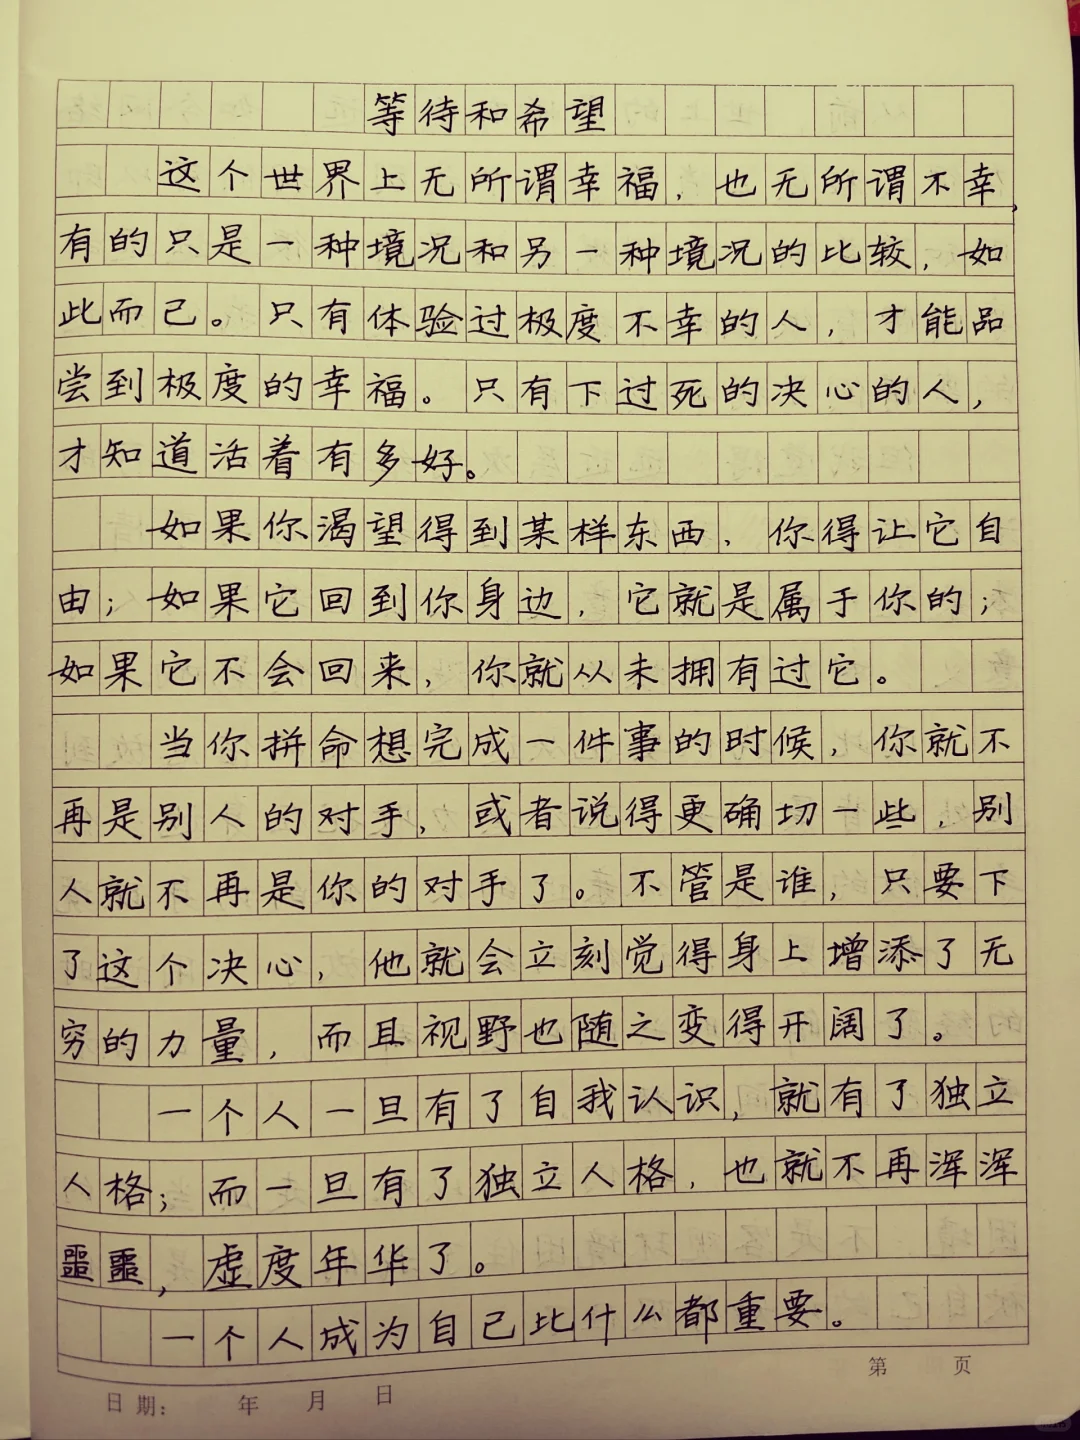 等待和希望
这个世界上无所谓幸福，也无所谓不幸，
有的只是一种境况和另一种境况的比较，如
此而已。只有体验过极度不幸的人，才能品
尝到极度的幸福。只有下过死的决心的人，
才知道活着有多好。
如果你渴望得到某样东西，你得让它自
由；如果它回到你身边，它就是属于你的；
如果它不会回来，你就从未拥有过它。
当你拼命想完成一件事的时候，你就不
再是别人的对手，或者说得更确切一些，别
人就不再是你的对手了。不管是谁，只要下
了这个决心，他就会立刻觉得身上增添了无
穷的力量，而且视野也随之变得开阔了。
一个人一旦有了自我认识，就有了独立
人格；而一旦有了独立人格，也就不再浑浑
噩噩，虚度年华了。
一个人成为自己比什么都重要。
第 页
日期： 年 月 日